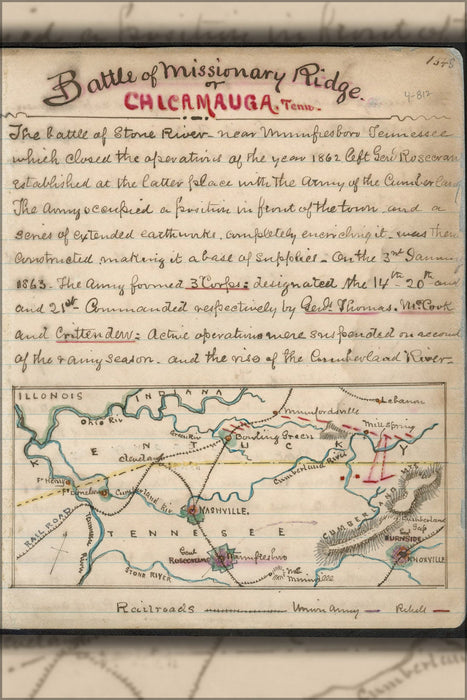 1548
Battle of Missionary Ridge.
or
CHICAMAUGA. Tenn.
4-812
The battle of Stone River near Murfresboro Tennessee
which closed the operations of the year 1862 left Genl Roscoran
established at the latter place with the Army of the Cumberland
The Army occupied a position in front of the town, and a
series of extended earthworks, completely encircling it, was then
constructed making it a base of supplies. On the 3rd January
1863. The Army formed 3 Corps: designated the 14th 20th and
and 21st Commanded respectively by Genls. Thomas. McCook
and Crittenden: Active operations were suspended on account
of the rainy season. and the rise of the Cumberlaad River.
ILLONOIS
INDIANA
Lebanon
Ohio Riv
Munfordsville
Green Riv
Bowling Green
Mill Spring
KENTUCKY
Ft Henry
Ft Donelson
Cumberland Riv
Cumberland River
CUMBERLAND MTS
NASHVILLE.
RAIL ROAD
Tennessee River
Cumberland Gap
TENNESSEE
BURNSIDE
Genl Roscoran
Murfresbro
KNOXVILLE
STONE RIVER
Railroads
Union Army
Rebell